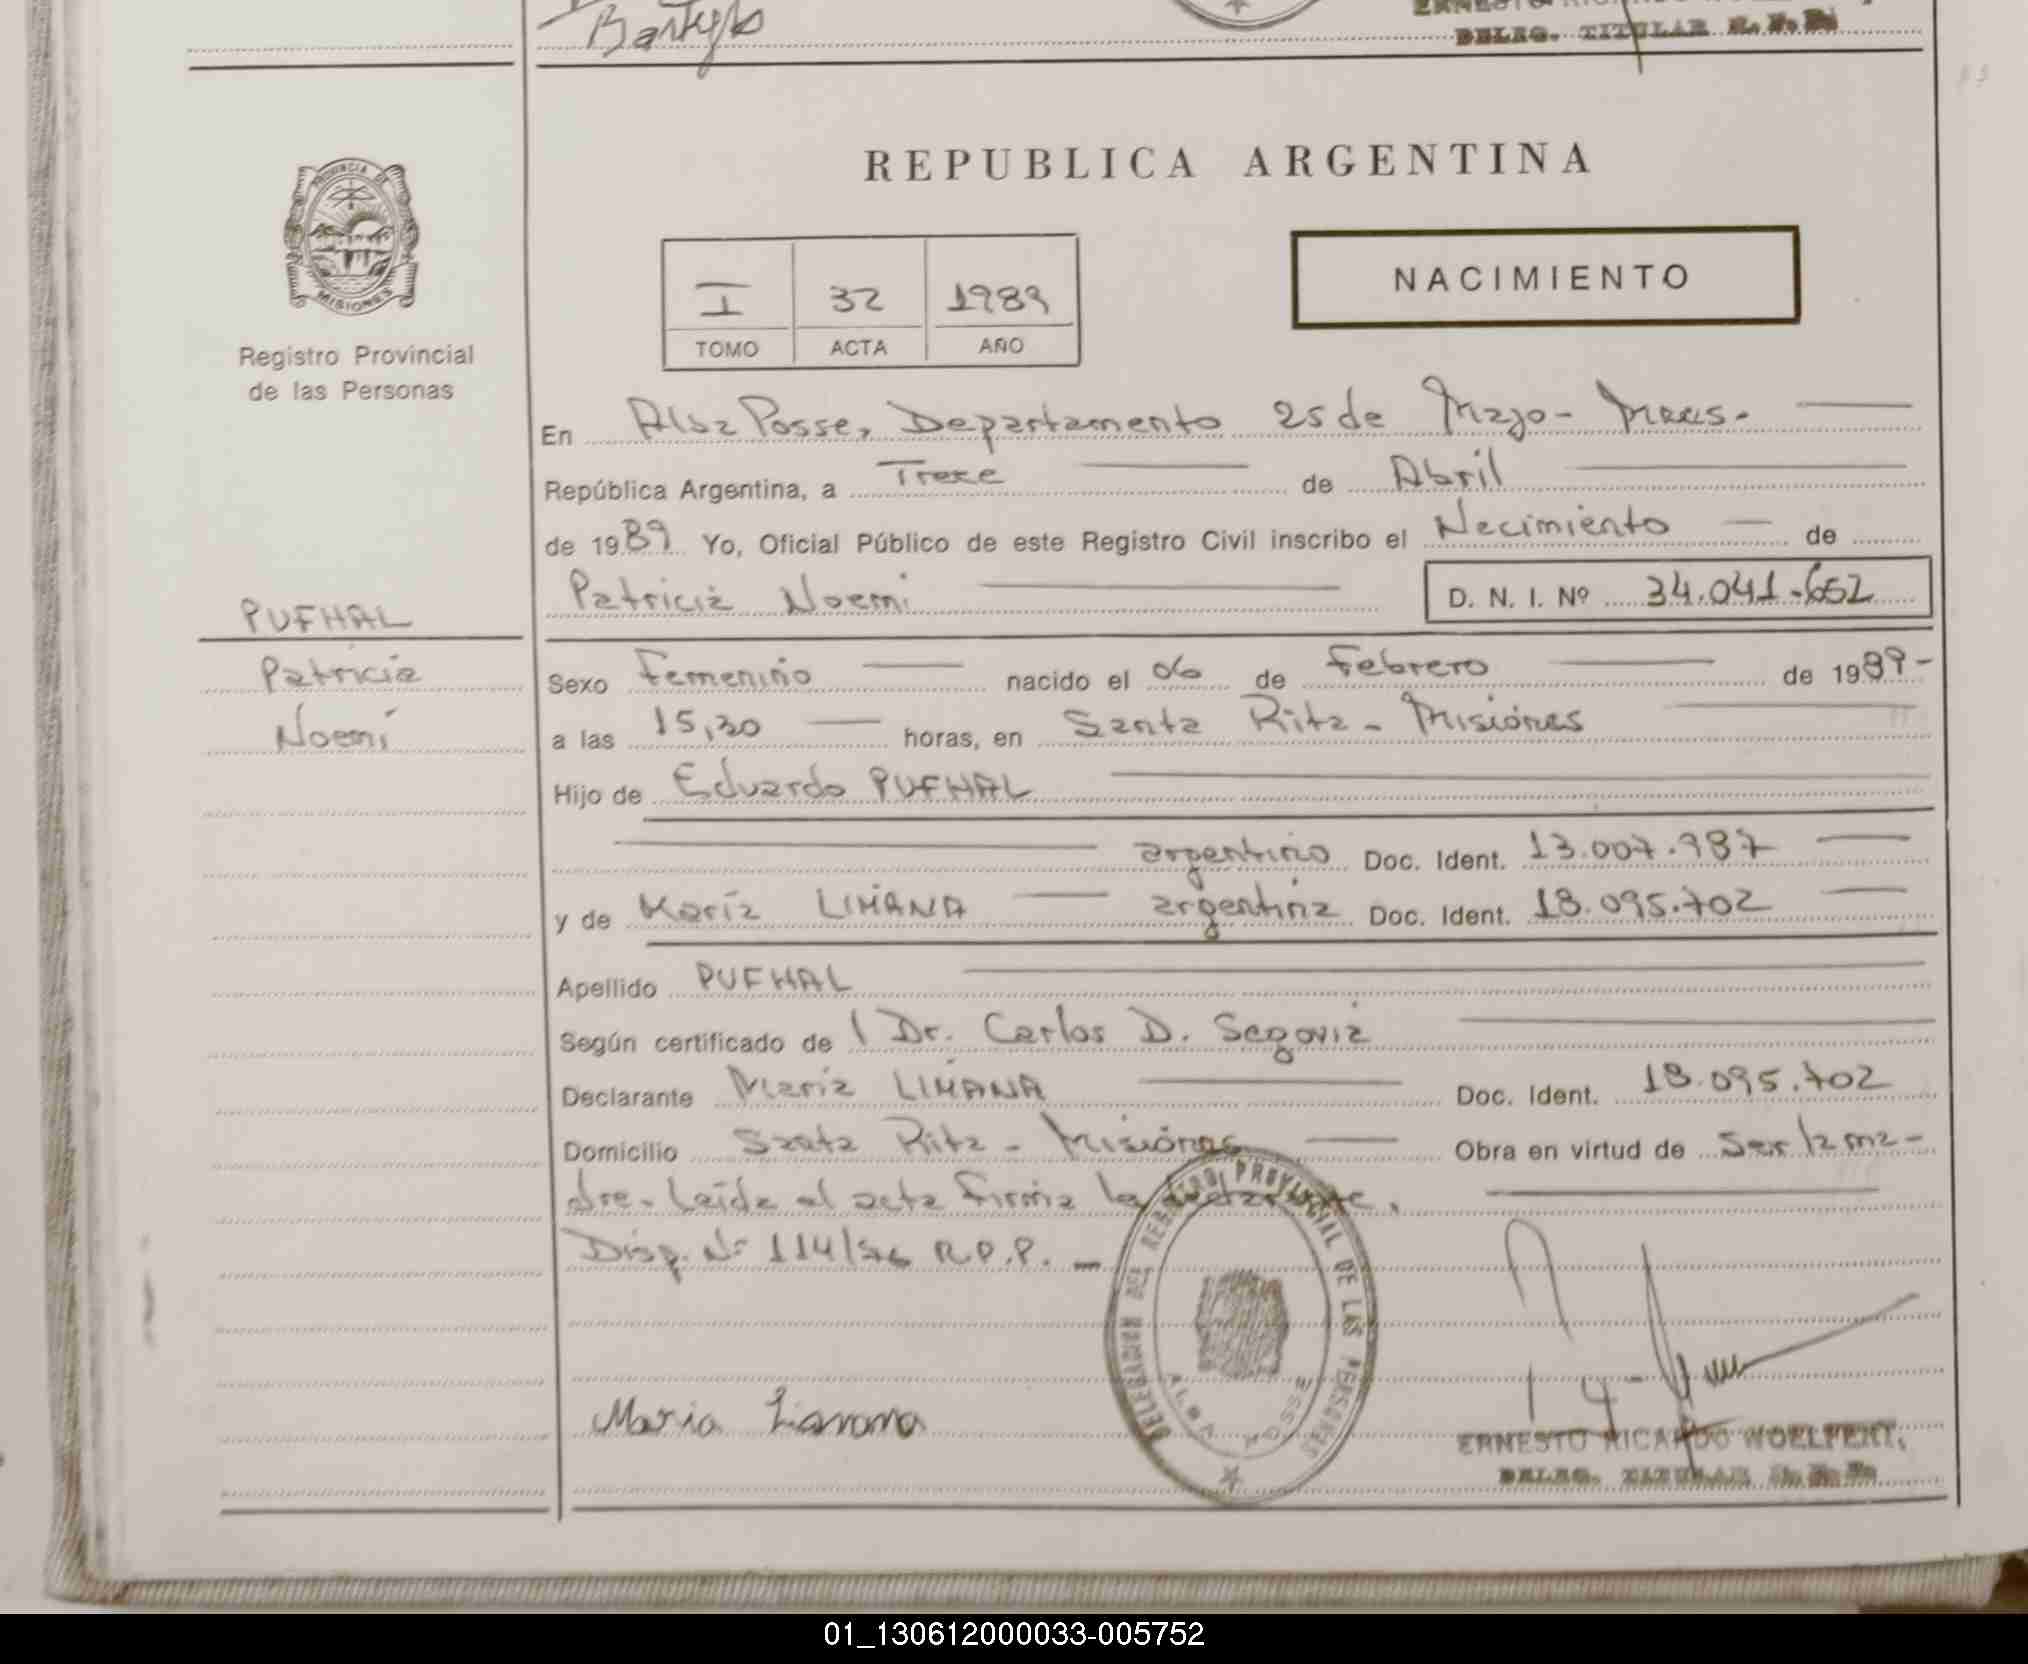 Bartylo
DELEG. TITULAR R.P.P.
PROVINCIA DE
MISIONES
Registro Provincial
de las Personas
REPUBLICA ARGENTINA
I 32 1989
TOMO ACTA AÑO
NACIMIENTO
En Alba Posse, Departamento 25 de Mayo - Mnes.
República Argentina, a Trece de Abril
de 1989 Yo, Oficial Público de este Registro Civil inscribo el Nacimiento de
Patricia Noemi D. N. I. Nº 34.041.652
PUFHAL
Patricia
Noemí
Sexo Femenino nacido el 06 de Febrero de 1989-
a las 15,30 horas, en Santa Rita - Misiones
Hijo de Eduardo PUFHAL
argentino Doc. Ident. 13.007.987
y de María LIMANA argentina Doc. Ident. 18.095.702
Apellido PUFHAL
Según certificado de l Dr. Carlos D. Segovia
Declarante María LIMANA Doc. Ident. 18.095.702
Domicilio Santa Rita - Misiones Obra en virtud de Ser la ma-
dre- Leída el acta firma la declarante.
Disp. Nº 114/76 R.P.P. -
DELEGACION DEL REGISTRO PROVINCIAL DE LAS PERSONAS
ALBA POSSE
Maria Limana
ERNESTO RICARDO WOELFERT
DELEG. TITULAR R.P.P.
01_130612000033-005752